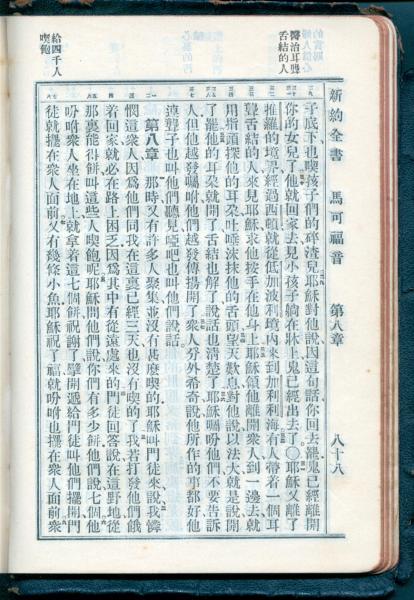 新約全書 馬可福音 第八章 八十八
醫治耳聾
舌結的人
給四千人
喫飽
子底下也喫孩子們的碎渣兒耶穌對他說因這句話你回去罷鬼已經離開
你的女兒了他就回家去見小孩子躺在牀上鬼已經出去了〇耶穌又離了
推羅的境界經過西頓就從低加波利境內來到加利利海有人帶着一個耳
聾舌結的人來見耶穌求他按手在他身上耶穌領他離開衆人到一邊去就
用指頭探他的耳朶吐唾沫抹他的舌頭望天歎息對他說以法大就是說開
了罷他的耳朶就開了舌結也解了說話也清楚了耶穌囑咐他們不要告訴
人但他越發囑咐他們越發傳揚開了衆人分外希奇說他所作的事都好他
連聾子也叫他們聽見啞吧也叫他們說話
第八章 那時又有許多人聚集並沒有甚麽喫的耶穌叫門徒來說我憐
憫這衆人因爲他們同我在這裏已經三天也沒有喫的了我若打發他們餓
着回家就必在路上困乏因爲其中有從遠處來的門徒回答說在這野地從
那裏能得餅叫這些人喫飽呢耶穌問他們說你們有多少餅他們說七個他
吩咐衆人坐在地上就拿着這七個餅祝謝了擘開遞給門徒叫他們擺開門
徒就擺在衆人面前又有幾條小魚耶穌祝了福就吩咐也擺在衆人面前衆